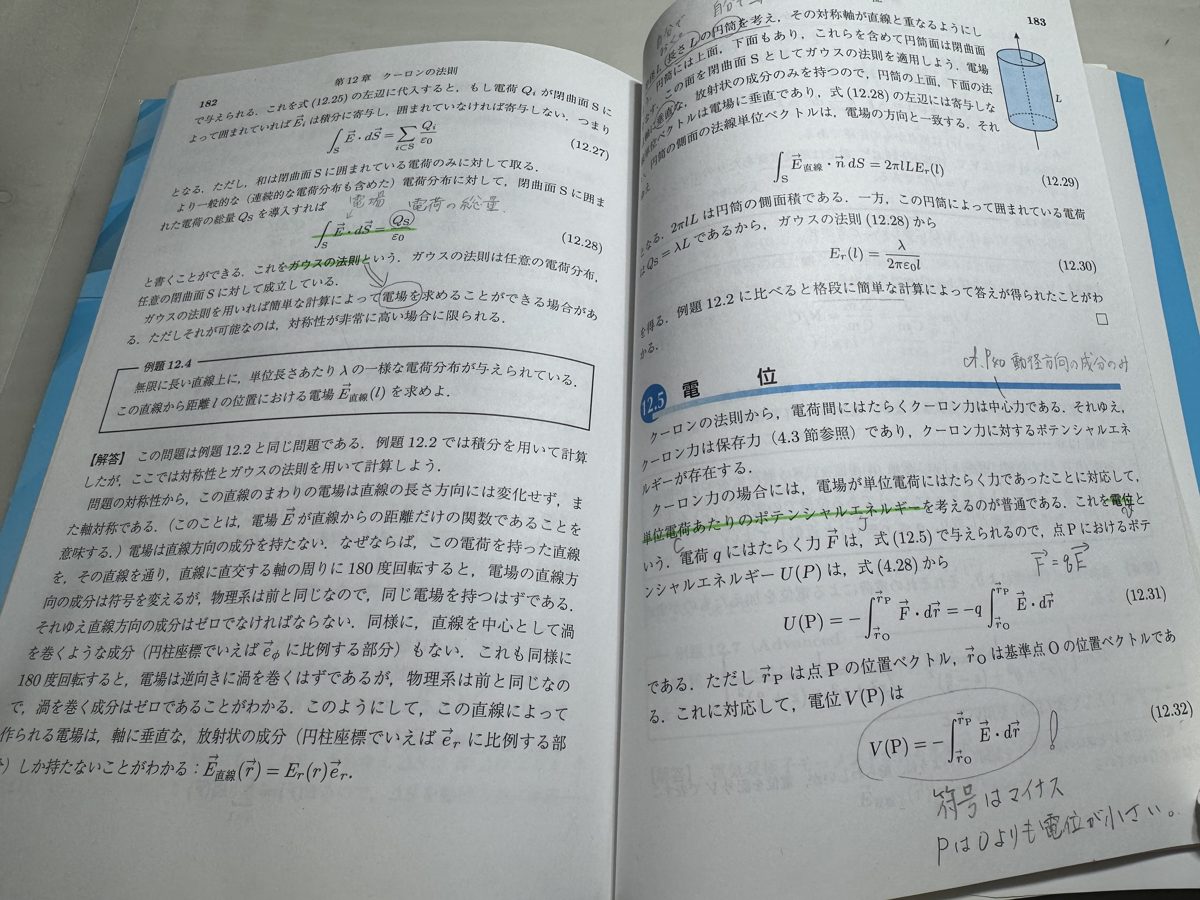 182
第12章 クーロンの法則
で与えられる．これを式 (12.25) の左辺に代入すると，もし電荷 Qᵢ が閉曲面 S に
よって囲まれていれば E⃗ᵢ は積分に寄与し，囲まれていなければ寄与しない．つまり
∫_S E⃗・dS⃗ = Σ_{i⊂S} Qᵢ/ε₀ (12.27)
となる．ただし，和は閉曲面 S に囲まれている電荷のみに対して取る．
より一般的な（連続的な電荷分布も含めた）電荷分布に対して，閉曲面 S に囲ま
れた電荷の総量 Q_S を導入すれば
電場 電荷の総量．
∫_S E⃗・dS⃗ = Q_S/ε₀ (12.28)
と書くことができる．これをガウスの法則という．ガウスの法則は任意の電荷分布，
任意の閉曲面 S に対して成立している．
ガウスの法則を用いれば簡単な計算によって電場を求めることができる場合があ
る．ただしそれが可能なのは，対称性が非常に高い場合に限られる．
例題 12.4
無限に長い直線上に，単位長さあたり λ の一様な電荷分布が与えられている．
この直線から距離 l の位置における電場 E⃗直線(l) を求めよ．
【解答】 この問題は例題 12.2 と同じ問題である．例題 12.2 では積分を用いて計算
したが，ここでは対称性とガウスの法則を用いて計算しよう．
問題の対称性から，この直線のまわりの電場は直線の長さ方向には変化せず，ま
た軸対称である．（このことは，電場 E⃗ が直線からの距離だけの関数であることを
意味する．）電場は直線方向の成分を持たない．なぜならば，この電荷を持った直線
を，その直線を通り，直線に直交する軸の周りに 180 度回転すると，電場の直線方
向の成分は符号を変えるが，物理系は前と同じなので，同じ電場を持つはずである．
それゆえ直線方向の成分はゼロでなければならない．同様に，直線を中心として渦
を巻くような成分（円柱座標でいえば e⃗_φ に比例する部分）もない．これも同様に
180 度回転すると，電場は逆向きに渦を巻くはずであるが，物理系は前と同じなの
で，渦を巻く成分はゼロであることがわかる．このようにして，この直線によって
作られる電場は，軸に垂直な，放射状の成分（円柱座標でいえば e⃗_r に比例する部
）しか持たないことがわかる：E⃗直線(r⃗) = E_r(r)e⃗_r．
183
長さ L の円筒を考え，その対称軸が直線と重なるようにし
円筒には上面，下面もあり，これらを含めて円筒面は閉曲面
この面を閉曲面 S としてガウスの法則を適用しよう．電場
垂直な，放射状の成分のみを持つので，円筒の上面，下面の法
単位ベクトルは電場に垂直であり，式 (12.28) の左辺には寄与しな
円筒の側面の法線単位ベクトルは，電場の方向と一致する．それ
L
∫_S E⃗直線・n⃗ dS = 2πlLE_r(l) (12.29)
となる．2πlL は円筒の側面積である．一方，この円筒によって囲まれている電荷
は Q_S = λL であるから，ガウスの法則 (12.28) から
E_r(l) = λ/2πε₀l (12.30)
を得る．例題 12.2 に比べると格段に簡単な計算によって答えが得られたことがわ
かる． □
動径方向の成分のみ
12.5 電 位
クーロンの法則から，電荷間にはたらくクーロン力は中心力である．それゆえ，
クーロン力は保存力（4.3 節参照）であり，クーロン力に対するポテンシャルエネ
ルギーが存在する．
クーロン力の場合には，電場が単位電荷にはたらく力であったことに対応して，
単位電荷あたりのポテンシャルエネルギーを考えるのが普通である．これを電位と
C J
いう．電荷 q にはたらく力 F⃗ は，式 (12.5) で与えられるので，点 P におけるポテ
ンシャルエネルギー U(P) は，式 (4.28) から
F⃗ = qE⃗
U(P) = −∫_{r⃗_O}^{r⃗_P} F⃗・dr⃗ = −q∫_{r⃗_O}^{r⃗_P} E⃗・dr⃗ (12.31)
である．ただし r⃗_P は点 P の位置ベクトル，r⃗_O は基準点 O の位置ベクトルであ
る．これに対応して，電位 V(P) は
V(P) = −∫_{r⃗_O}^{r⃗_P} E⃗・dr⃗ (12.32)
!
符号はマイナス
PはOよりも電位が小さい。